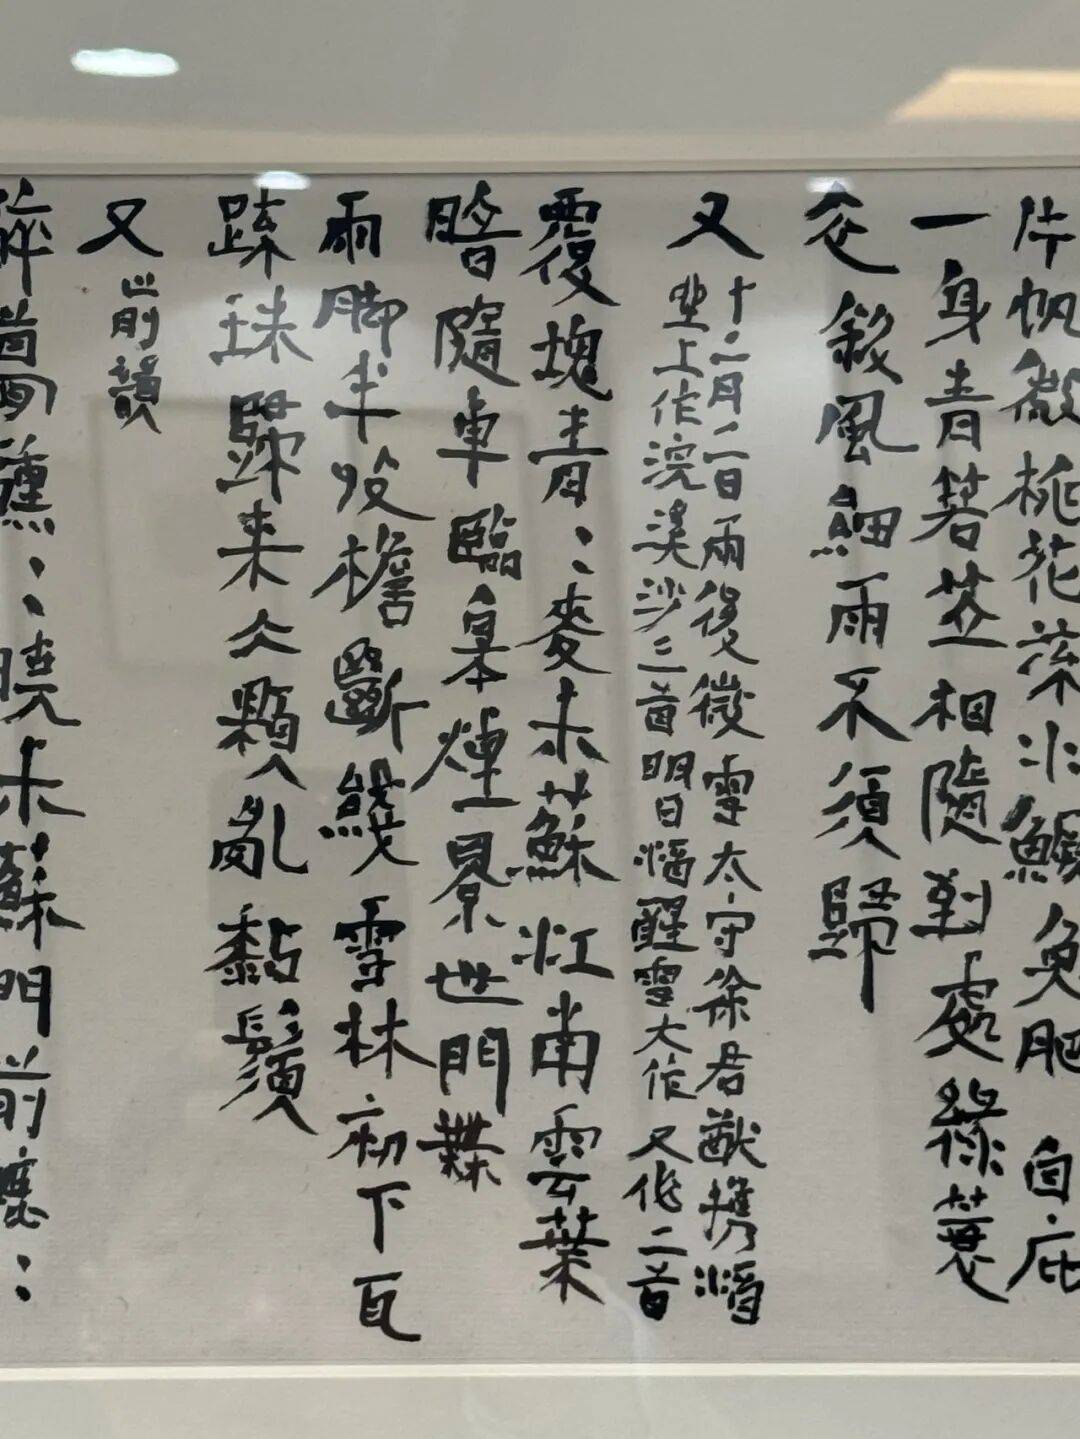 片帆微桃花流水鱖魚肥 自庇
一身青箬笠相隨到處綠蓑
衣斜風細雨不須歸
又 十二月二日雨後微雪太守徐君猷攜酒
坐上作浣溪沙三首明日酒醒雪大作又作二首
覆塊青〻麥未蘇江南雲葉
暗隨車臨皋煙景世間無
雨腳半收檐斷綫雪林初下瓦
疎珠歸來冰顆亂黏鬚
又 前韻
醉夢醺〻曉未蘇門前